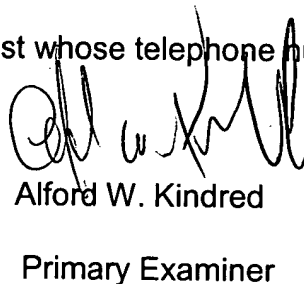 st whose telephone
Alford W. Kindred
Primary Examiner